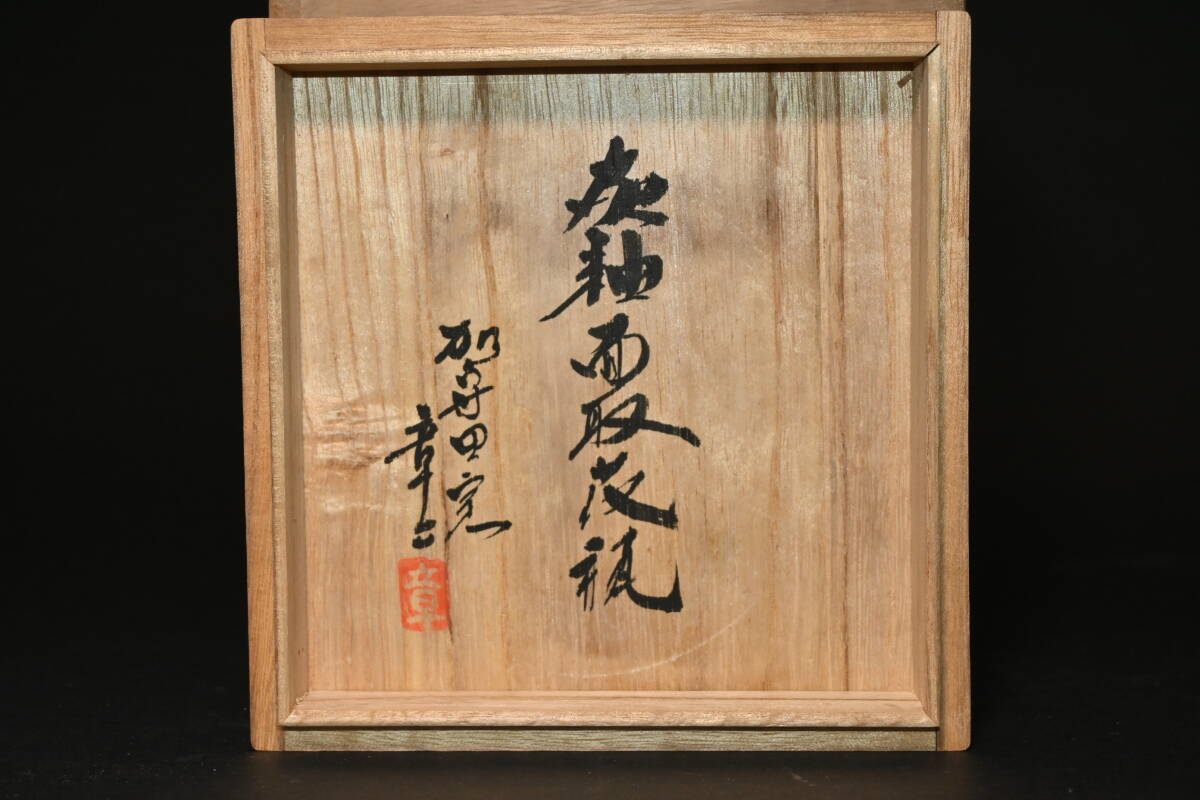 灰釉面取花瓶
加守田窯
章二
章